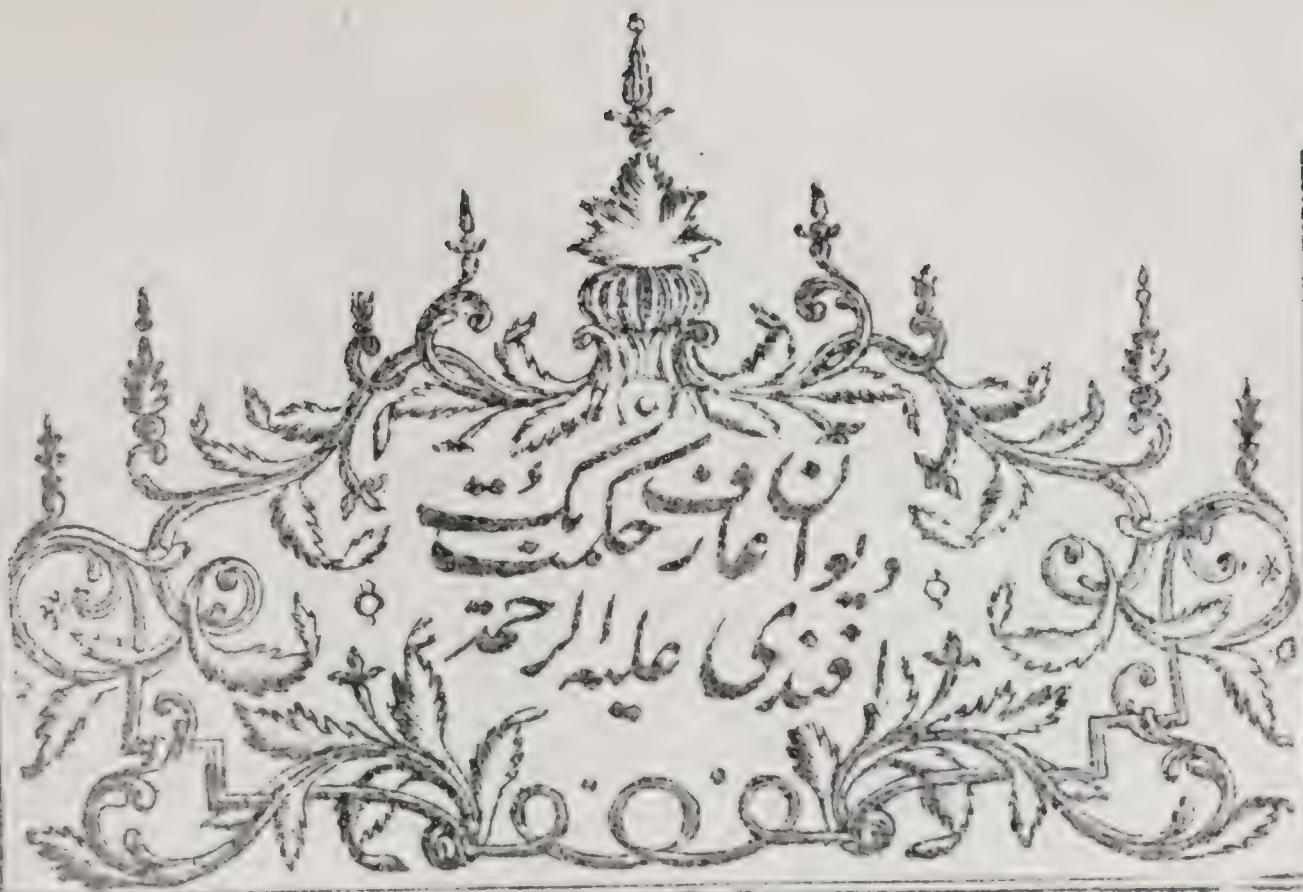 ديوان عارف حكمت بك
افندى عليه الرحمة